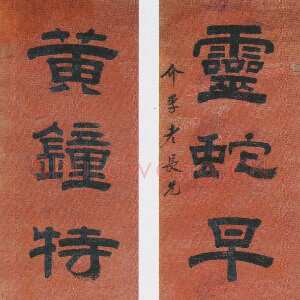 靈蛇早
介季老長兄
黃鐘特